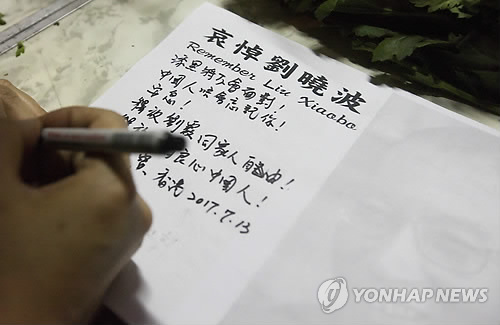 哀悼劉曉波
Remember Liu Xiaobo
漆黑將不會面對!
中國人 會忘記你!
安息!
釋放劉霞同家人自由!
良心中國人!
香港 2017.7.13
YONHAP NEWS